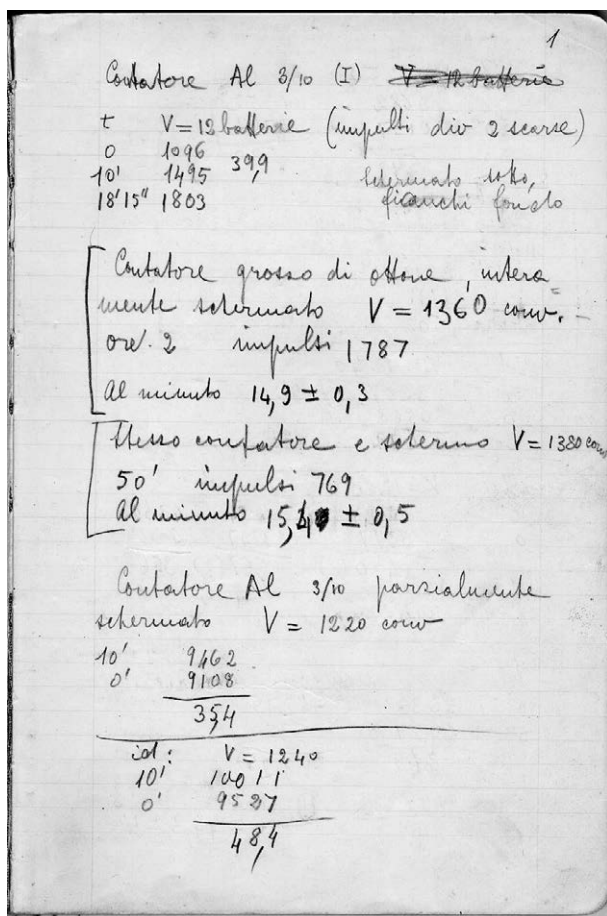 1
Contatore Al 3/10 (I) V=12 batterie
t V=12 batterie (impulsi div 2 scarse)
0 1096
10' 1495 39,9 schermato sotto,
18'15" 1803 fianchi fondo
Contatore grosso di ottone, intera=
mente schermato V = 1360 conv.
ore 2 impulsi 1787
Al minuto 14,9 ± 0,3
Stesso contatore e schermo V=1380 conv
50' impulsi 769
Al minuto 15,4 ± 0,5
Contatore Al 3/10 parzialmente
schermato V = 1220 conv
10' 9462
0' 9108
35,4
id: V = 1240
10' 10011
0' 9527
48,4